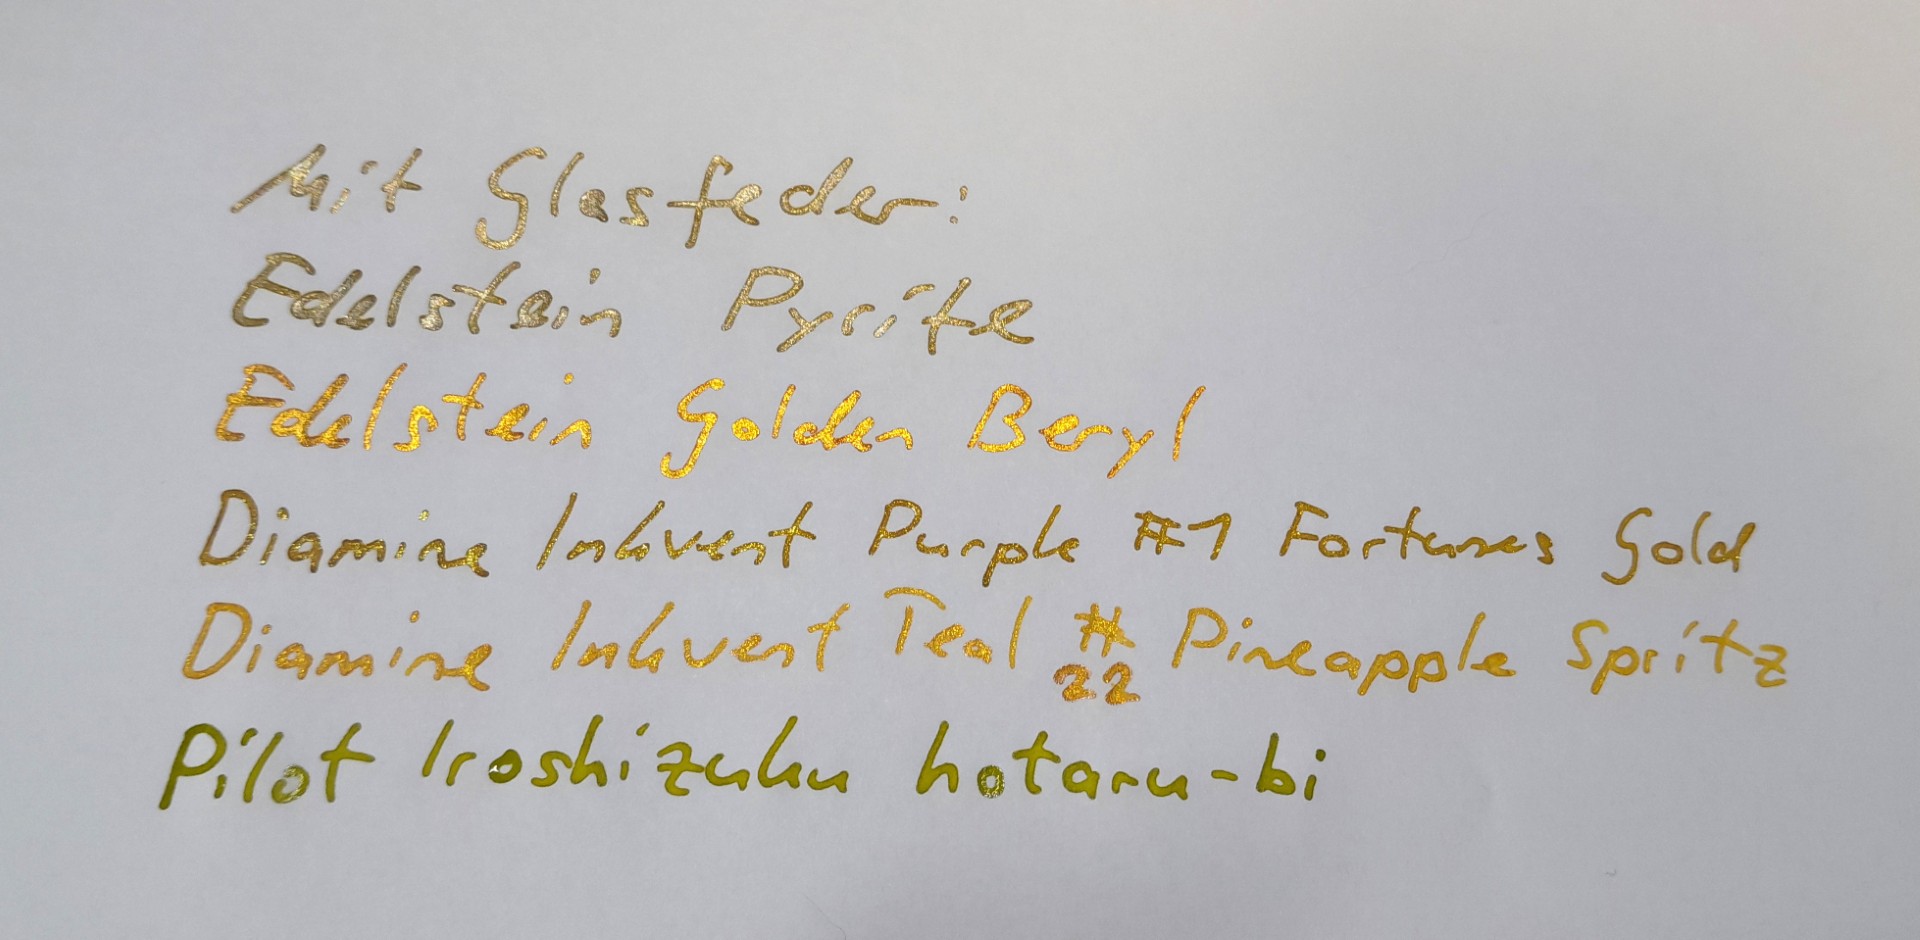 Mit Glasfeder:
Edelstein Pyrite
Edelstein Golden Beryl
Diamine Inkvent Purple #1 Fortunes Gold
Diamine Inkvent Teal #22 Pineapple Spritz
Pilot Iroshizuku hotaru-bi